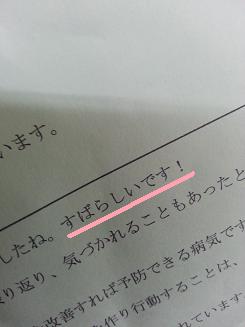 います。
したね。すばらしいです！
、気づかれることもあったと
り返り、
改善すれば予防できる病気です
作り行動することは、
れています